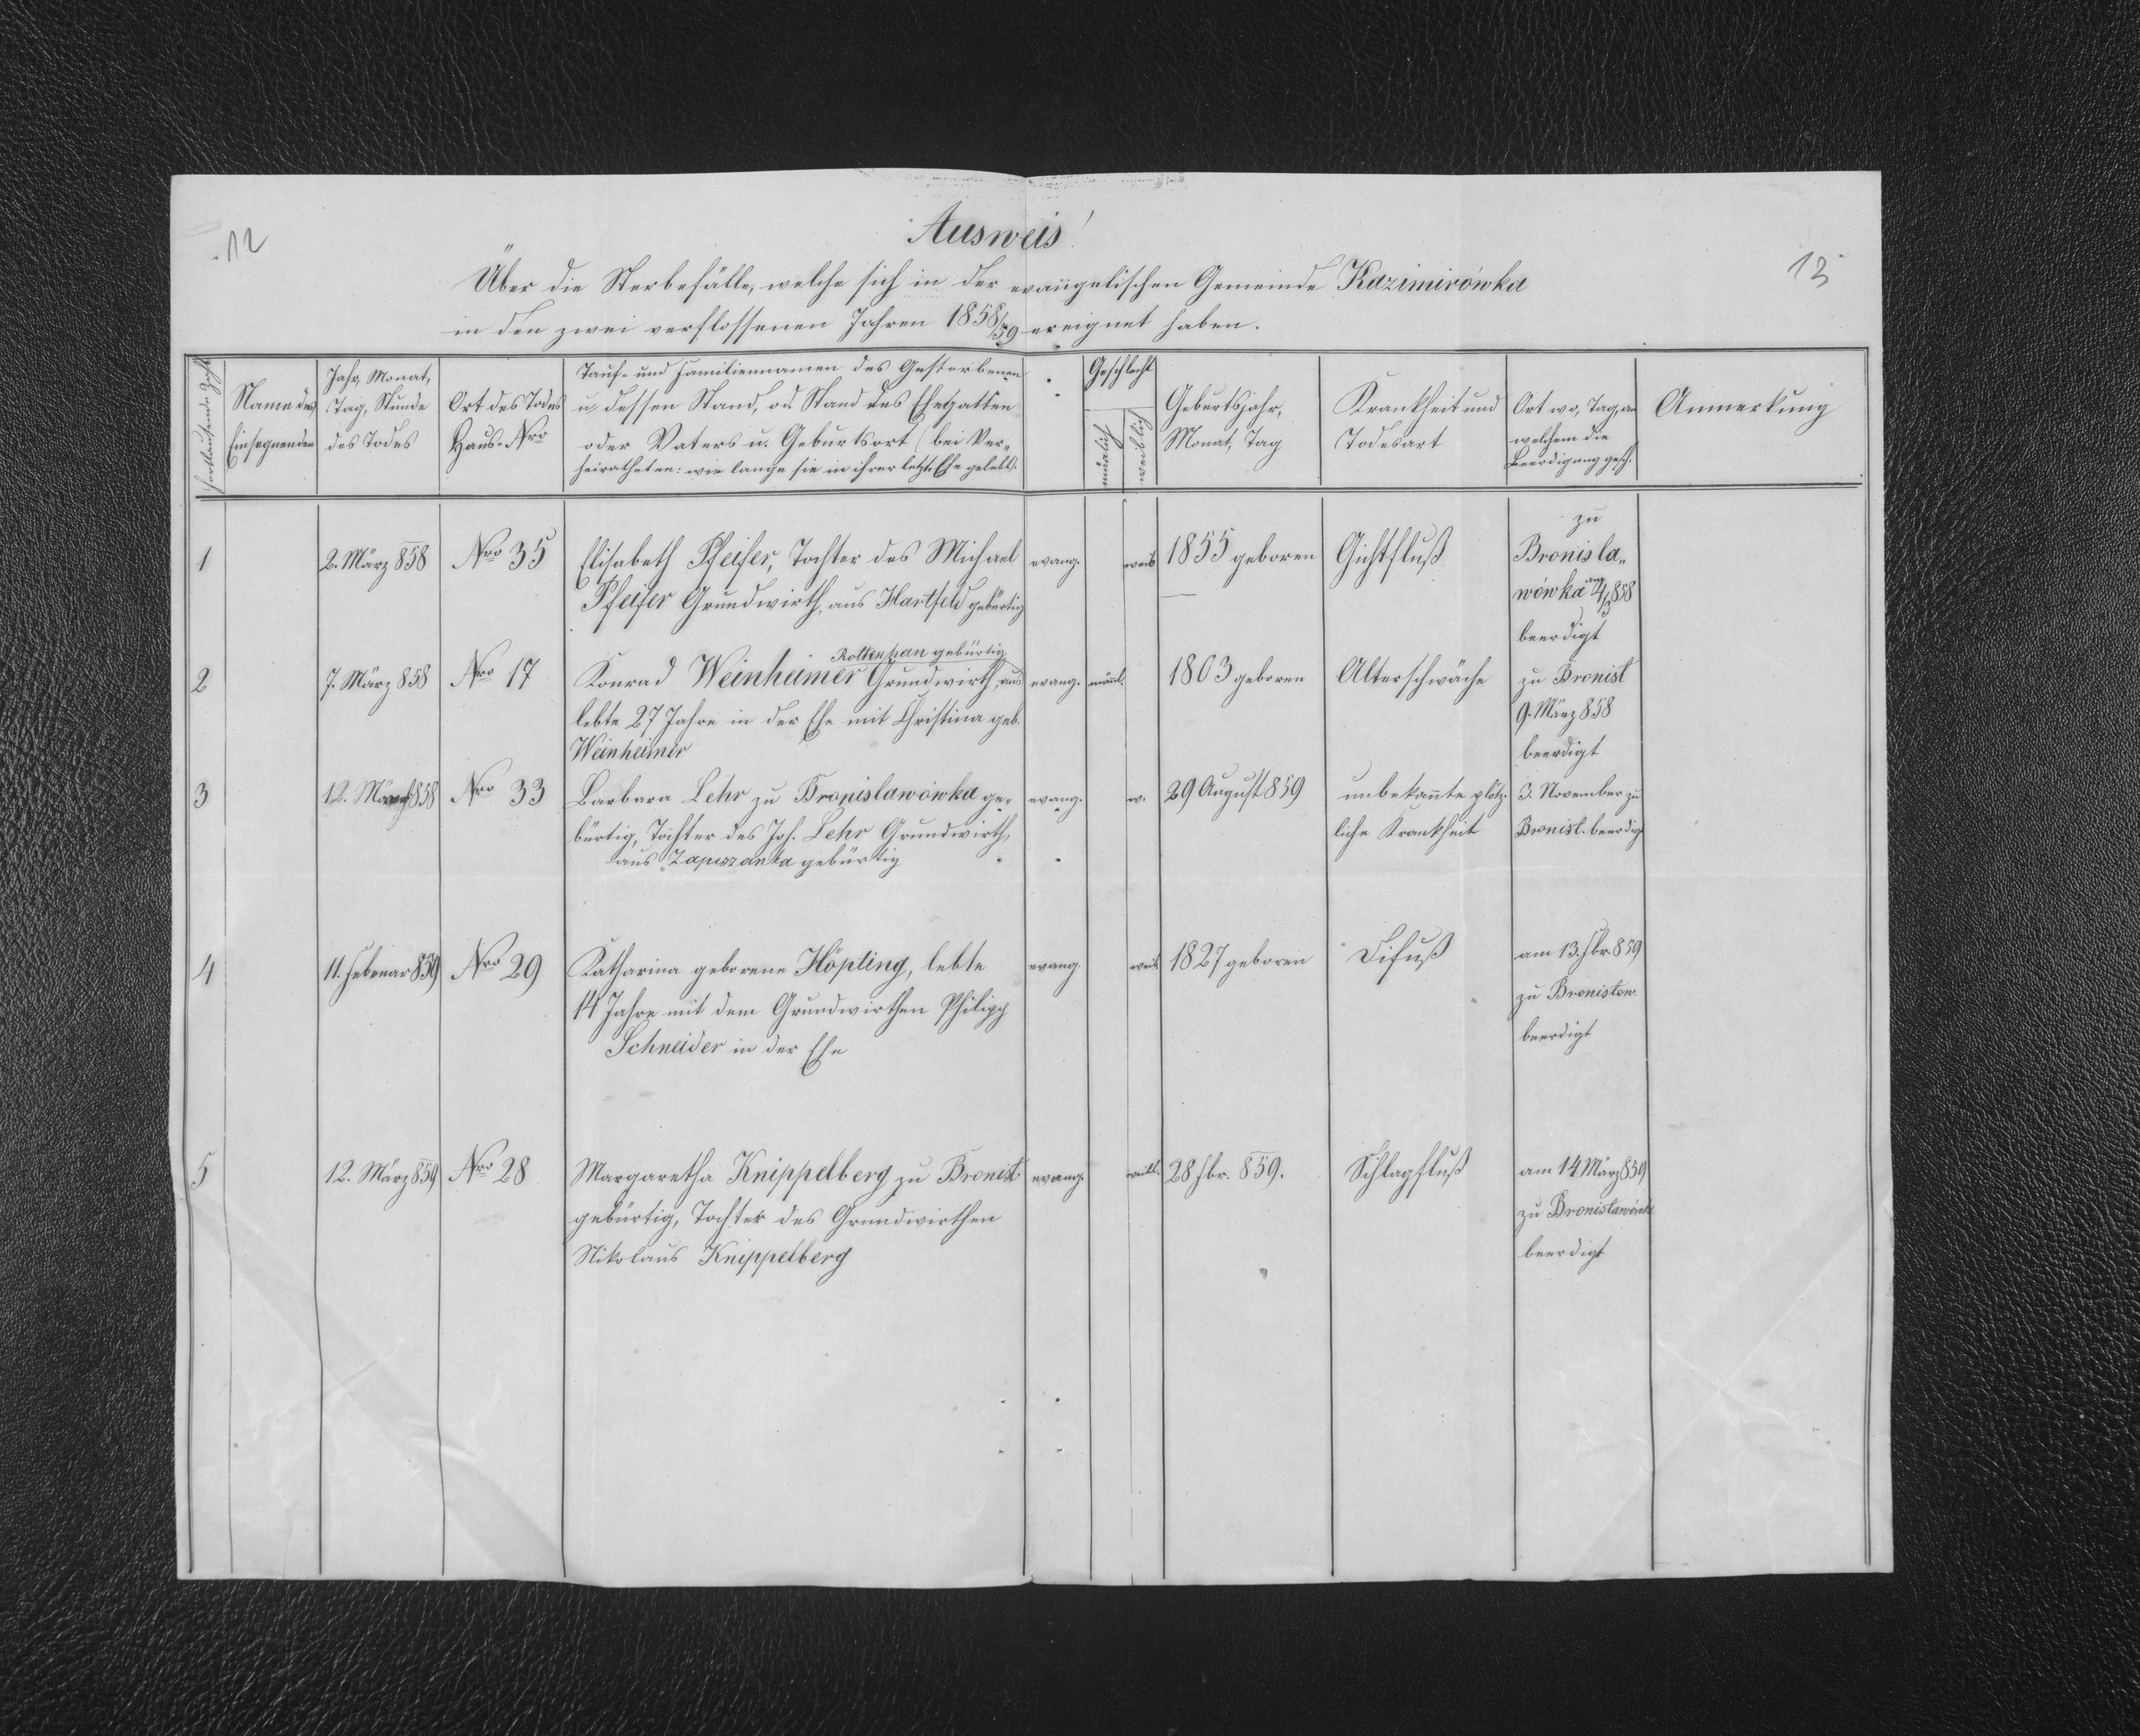 12
13
Ausweis
Über die Sterbefälle, welche sich in der evangelischen Gemeinde Kazimirówka
in den zwei verflossenen Jahren 1858/59 ereignet haben.
Fortlaufende Zahl
Name des
Einsegnenden
Jahr, Monat,
Tag, Stunde
des Todes
Ort des Todes
Haus-Nro
Tauf- und Familiennamen des Gestorbenen
u. dessen Stand, od. Stand des Ehegatten
oder Vaters u. Geburtsort (bei Ver-
heiratheten: wie lange sie in ihrer letzt. Ehe gelebt).
Geschlecht
mänlich
weiblich
Geburtsjahr,
Monat, Tag
Krankheit und
Todesart
Ort wo, Tag, an
welchem die
Beerdigung gesch.
Anmerkung
1
2. März 858
Nro 35
Elisabeth Pfeifer, Tochter des Michael
Pfeifer Grundwirth, aus Hartfeld gebürtig
evang.
weib
1855 geboren
Gichtfluß
zu
Bronisla-
wówka am 4/3 858
beerdigt
2
7. März 858
Nro 17
Rottenhan gebürtig
Konrad Weinheimer Grundwirth, aus
lebte 27 Jahre in der Ehe mit Christina geb.
Weinheimer
evang.
mänl.
1803 geboren
Alterschwäche
zu Bronisl
9. März 858
beerdigt
3
12. 858
Nro 33
Barbara Lehr zu Bronislawówka ge-
bürtig, Tochter des Joh. Lehr Grundwirth,
aus Zapuszanka gebürtig
evang.
w.
29 August 859
unbekañte plötz-
liche Krankheit
3. November zu
Bronisl. beerdigt
4
11. Februar 859
Nro 29
Katharina geborene Höpting, lebte
14 Jahre mit dem Grundwirthen Philipp
Schneider in der Ehe
evang.
weib.
1827 geboren
Difuß
am 13. Fbr. 859
zu Bronislow.
beerdigt
5
12. März 859
Nro 28
Margaretha Knippelberg zu Bronisl
gebürtig, Tochter des Grundwirthen
Nikolaus Knippelberg
evang.
weibl.
28 Fbr. 859.
Schlagfluß
am 14 März 859
zu Bronislawówka
beerdigt